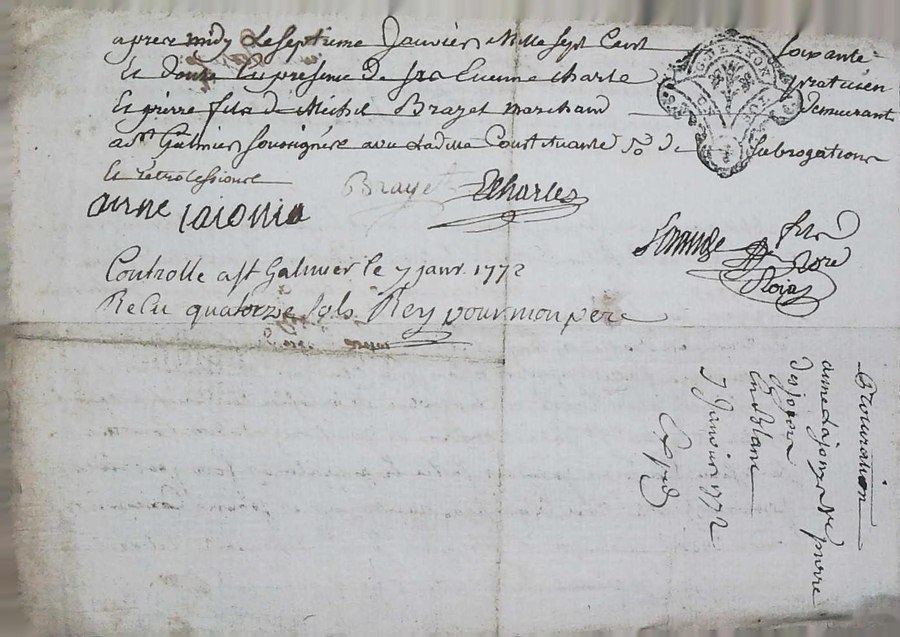 apres midy Le Septieme Janvier Mille Sept Cent Soixante
Et douze En presence de Srs Etienne charle praticien
Et pierre fils de Michel Brazet marchand demeurant
a St Galmier Soussignéz avec Ladite Constituante So de Subrogation
Et retrocession
anne laionie Brayet Echarles
Controllé a St Galmier le 7 janr. 1772
Reçu quatorze sols Rey pour mon pere
GNE LYON
Procuration
anne Lajoinie ve pierre
En Blanc
7 Janvier 1772
Expd